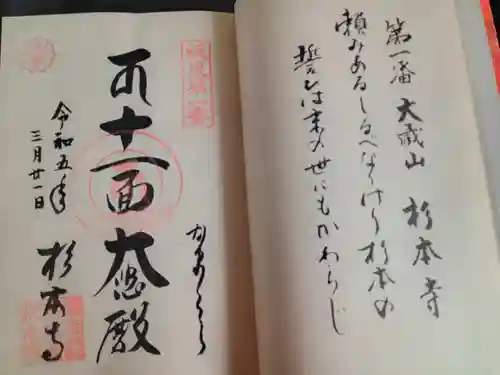 第一番 大蔵山 杉本寺
頼みあるしるべなりけり杉本の
誓ひは末の世にもかわらじ
坂東第一番
かまくら
十一面大悲殿
令和五年
三月廿一日
杉本寺